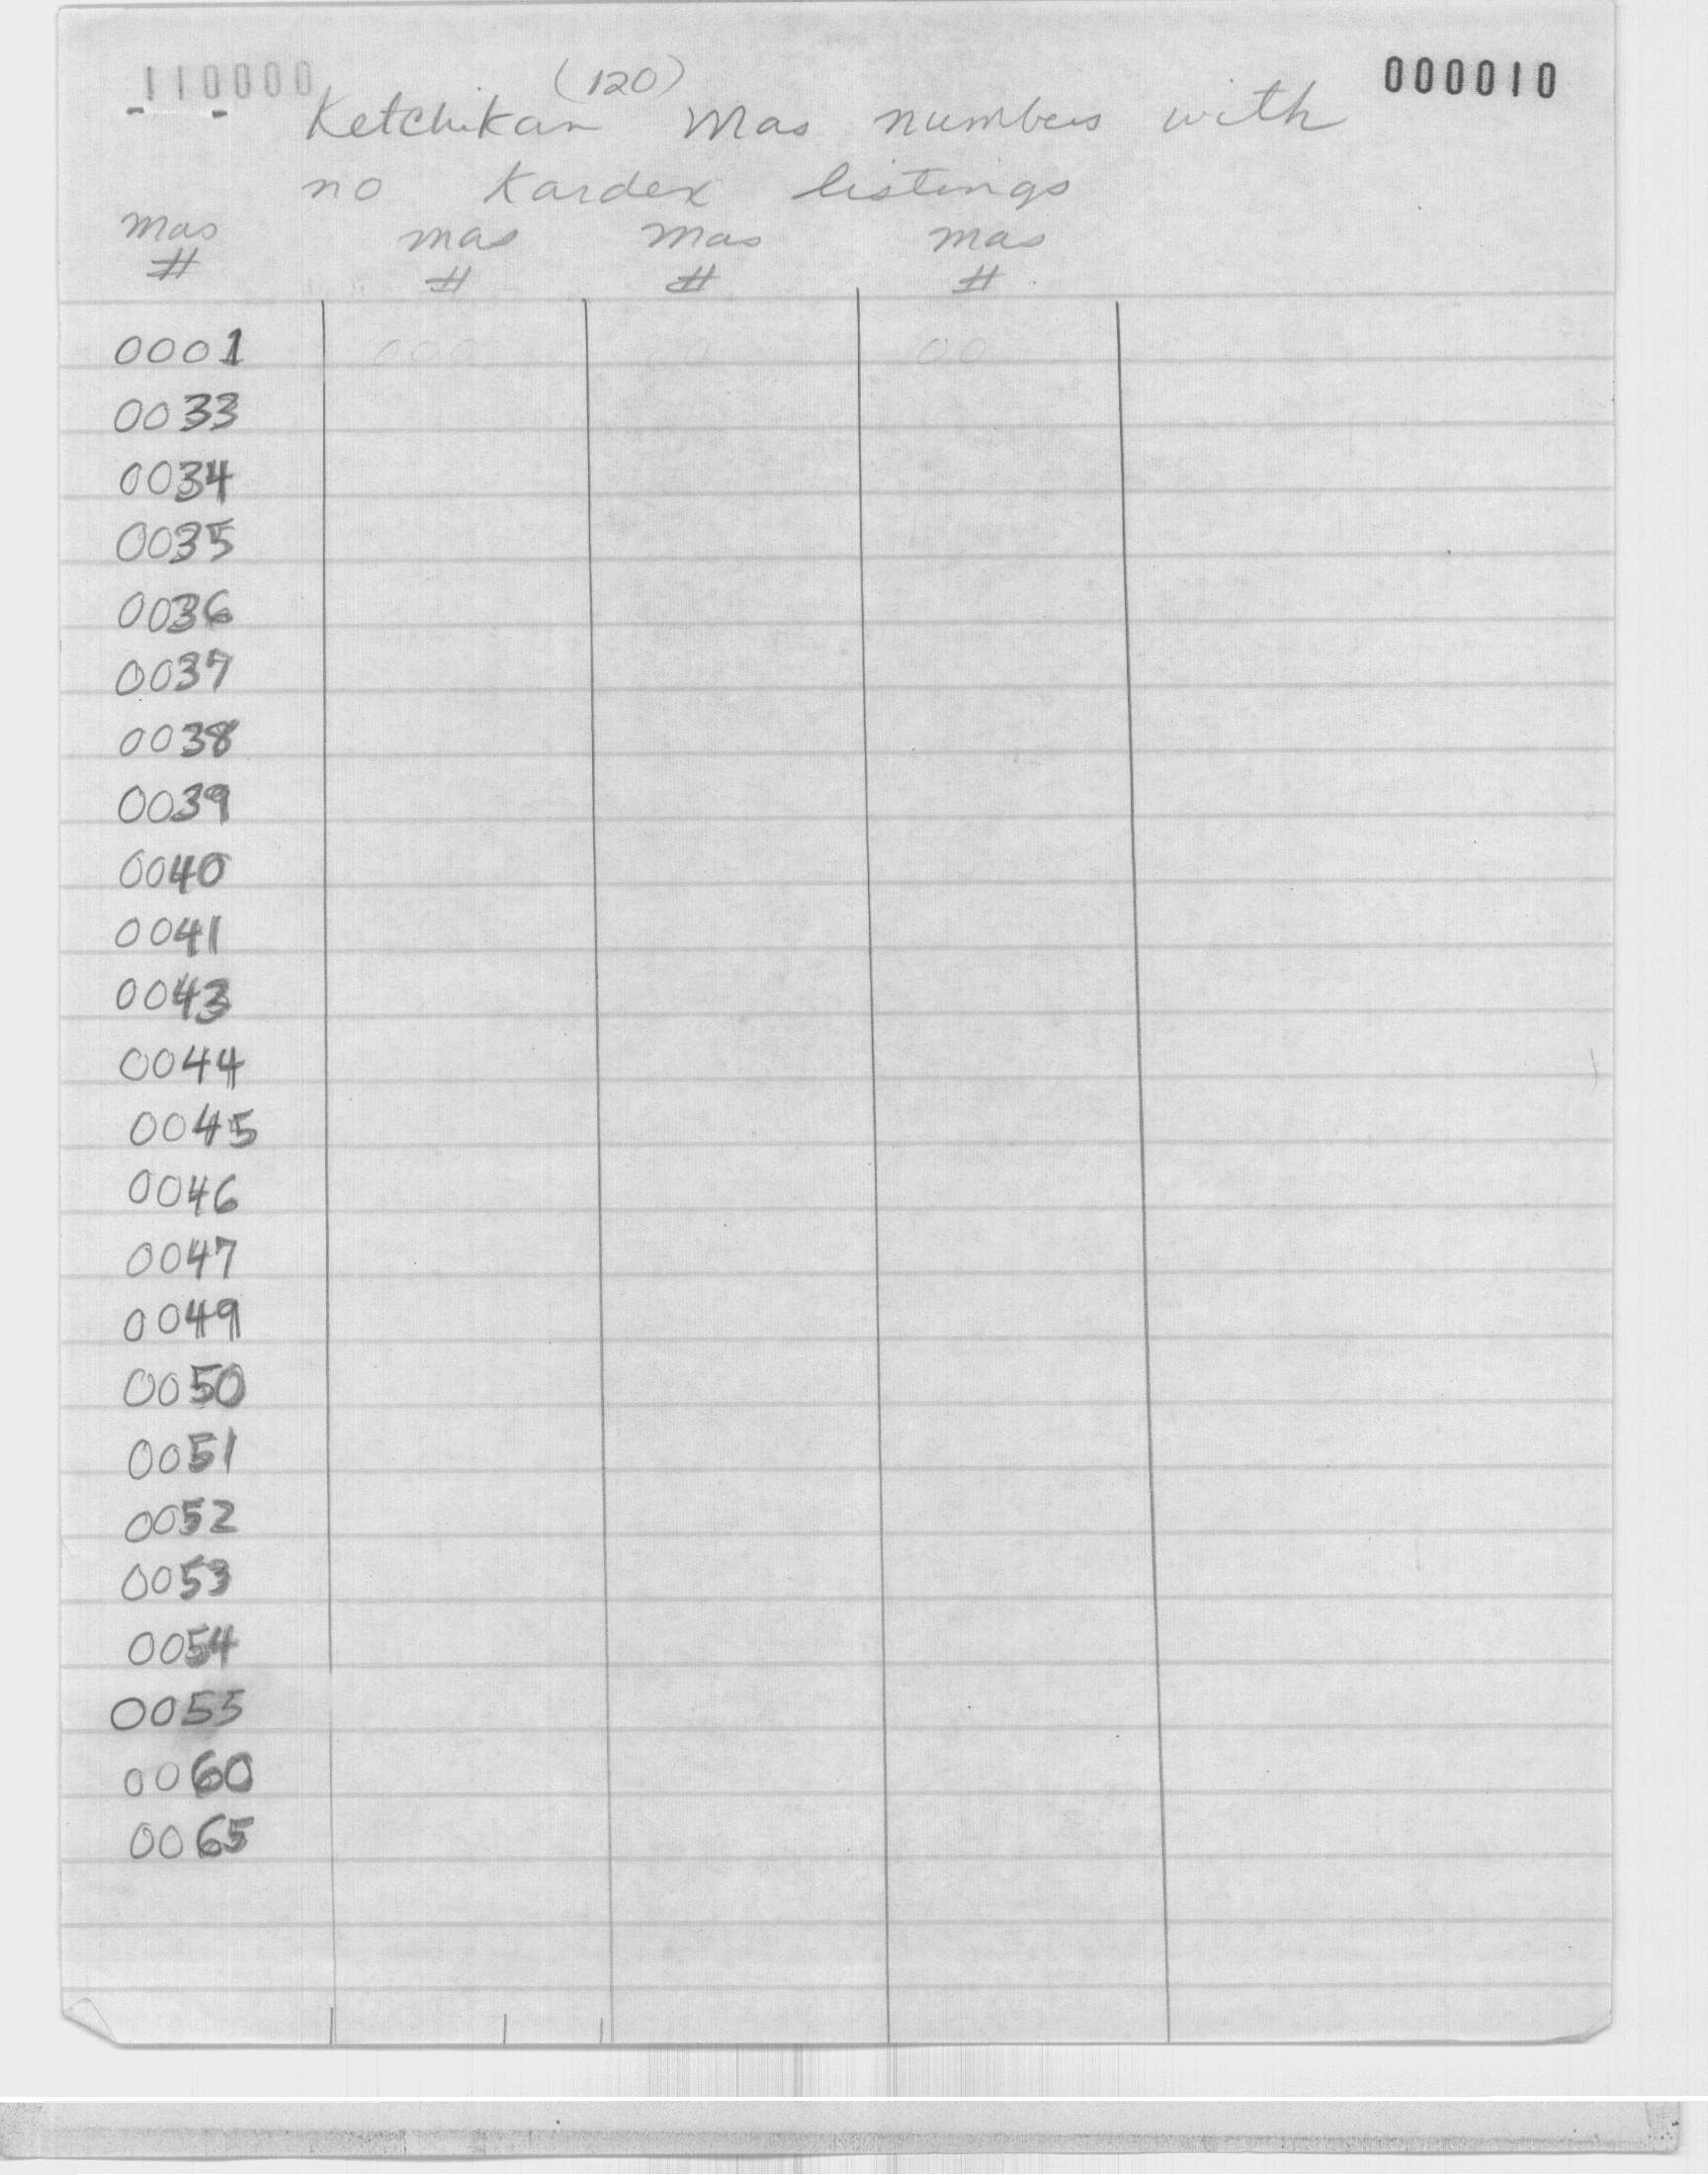 110000 000010
(120)
Ketchikan Mas numbers with
no Kardex listings
Mas Mas Mas Mas
# # # #
0001 000 00 00
0033
0034
0035
0036
0037
0038
0039
0040
0041
0043
0044
0045
0046
0047
0049
0050
0051
0052
0053
0054
0055
0060
0065